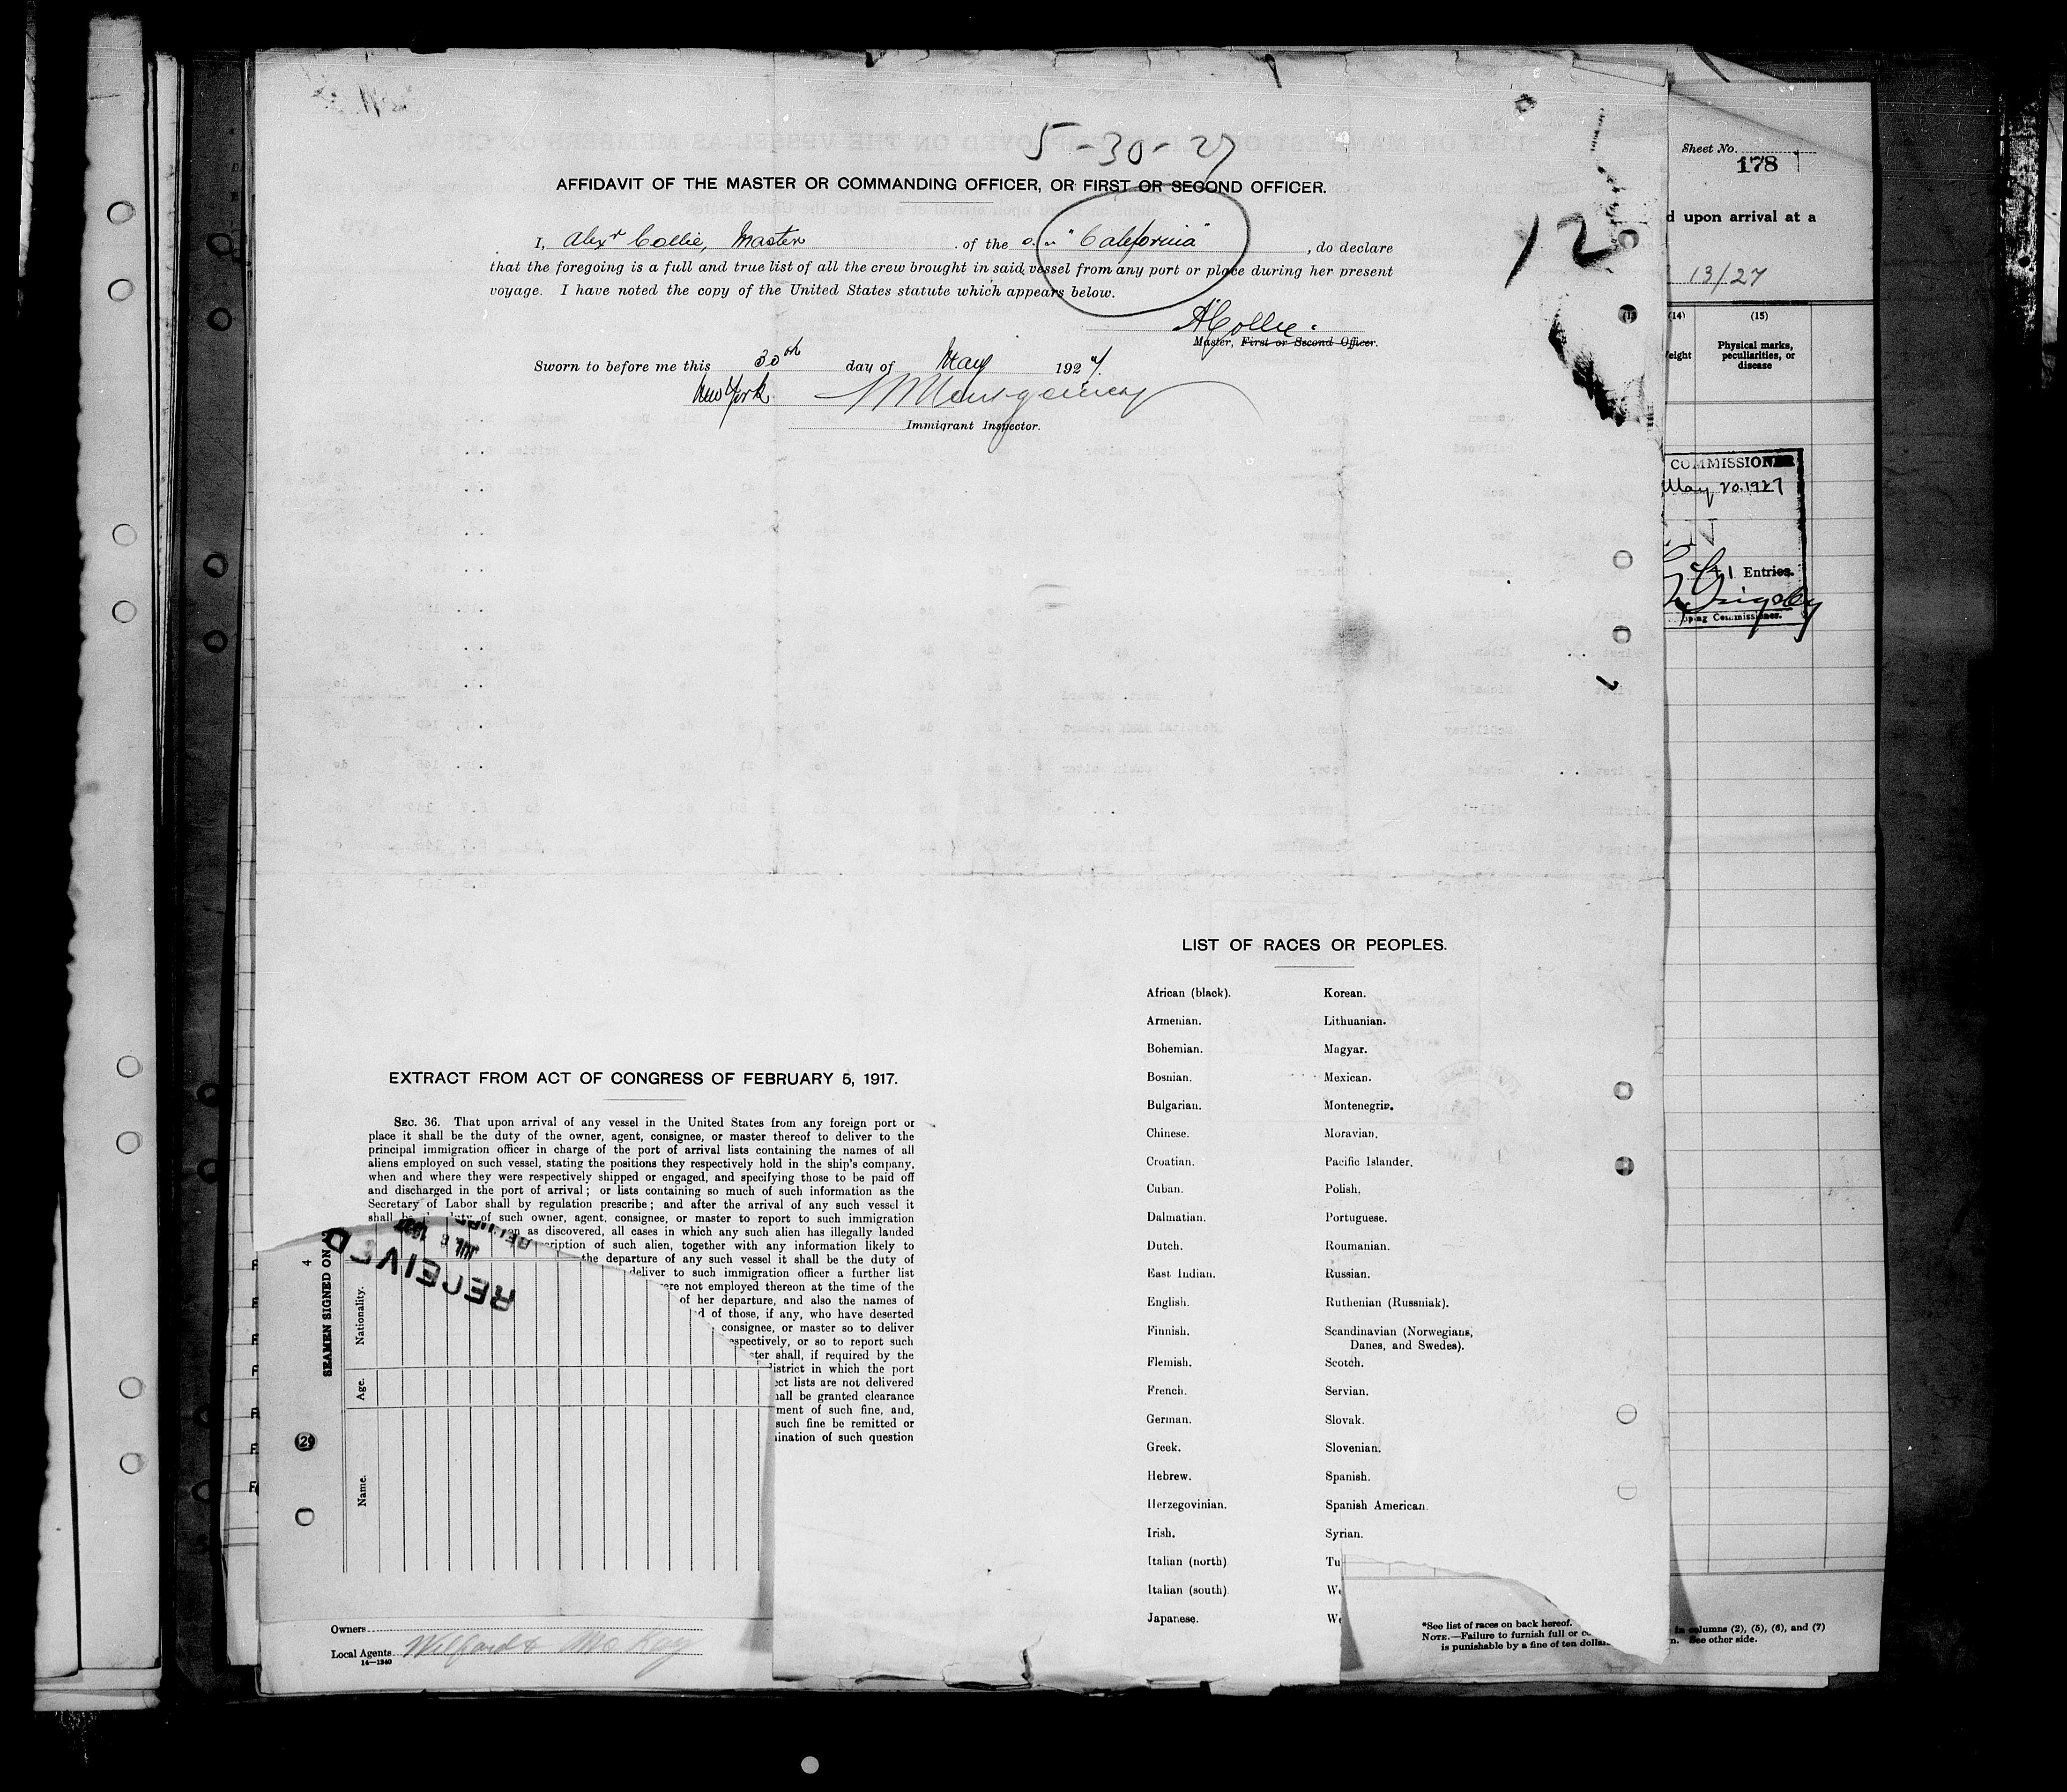 5-30-27
AFFIDAVIT OF THE MASTER OR COMMANDING OFFICER, OR FIRST OR SECOND OFFICER.
I, Alexr Collie, Master of the "California", do declare
that the foregoing is a full and true list of all the crew brought in said vessel from any port or place during her present
voyage. I have noted the copy of the United States statute which appears below.
12
A Collie.
Master, First or Second Officer.
Sworn to before me this 30th day of May 1927.
New York Montgomery
Immigrant Inspector.
Sheet No.
178
d upon arrival at a
13/27
(14) (15)
eight Physical marks, peculiarities, or disease
COMMISSIONER
May 20.1927
Entries.
ping Commissioner.
LIST OF RACES OR PEOPLES.
African (black). Korean.
Armenian. Lithuanian.
Bohemian. Magyar.
Bosnian. Mexican.
Bulgarian. Montenegrin.
Chinese. Moravian.
Croatian. Pacific Islander.
Cuban. Polish.
Dalmatian. Portuguese.
Dutch. Roumanian.
East Indian. Russian.
English. Ruthenian (Russniak).
Finnish. Scandinavian (Norwegians,
Danes, and Swedes).
Flemish. Scotch.
French. Servian.
German. Slovak.
Greek. Slovenian.
Hebrew. Spanish.
Herzegovinian. Spanish American.
Irish. Syrian.
Italian (north) Tu
Italian (south). We
Japanese. We
EXTRACT FROM ACT OF CONGRESS OF FEBRUARY 5, 1917.
SEC. 36. That upon arrival of any vessel in the United States from any foreign port or
place it shall be the duty of the owner, agent, consignee, or master thereof to deliver to the
principal immigration officer in charge of the port of arrival lists containing the names of all
aliens employed on such vessel, stating the positions they respectively hold in the ship's company,
when and where they were respectively shipped or engaged, and specifying those to be paid off
and discharged in the port of arrival; or lists containing so much of such information as the
Secretary of Labor shall by regulation prescribe; and after the arrival of any such vessel it
shall be the duty of such owner, agent, consignee, or master to report to such immigration
on as discovered, all cases in which any such alien has illegally landed
cription of such alien, together with any information likely to
the departure of any such vessel it shall be the duty of
deliver to such immigration officer a further list
ere not employed thereon at the time of the
of her departure, and also the names of
d of those, if any, who have deserted
consignee, or master so to deliver
espectively, or so to report such
ster shall, if required by the
district in which the port
ect lists are not delivered
hall be granted clearance
ment of such fine, and,
such fine be remitted or
ination of such question
RECEIVED
SEAMEN SIGNED ON
4
Nationality.
Age.
Name.
Owners
Local Agents
14-1240
*See list of races on back hereof.
NOTE.—Failure to furnish full or co
is punishable by a fine of ten dollar
in columns (2), (5), (6), and (7)
n. See other side.